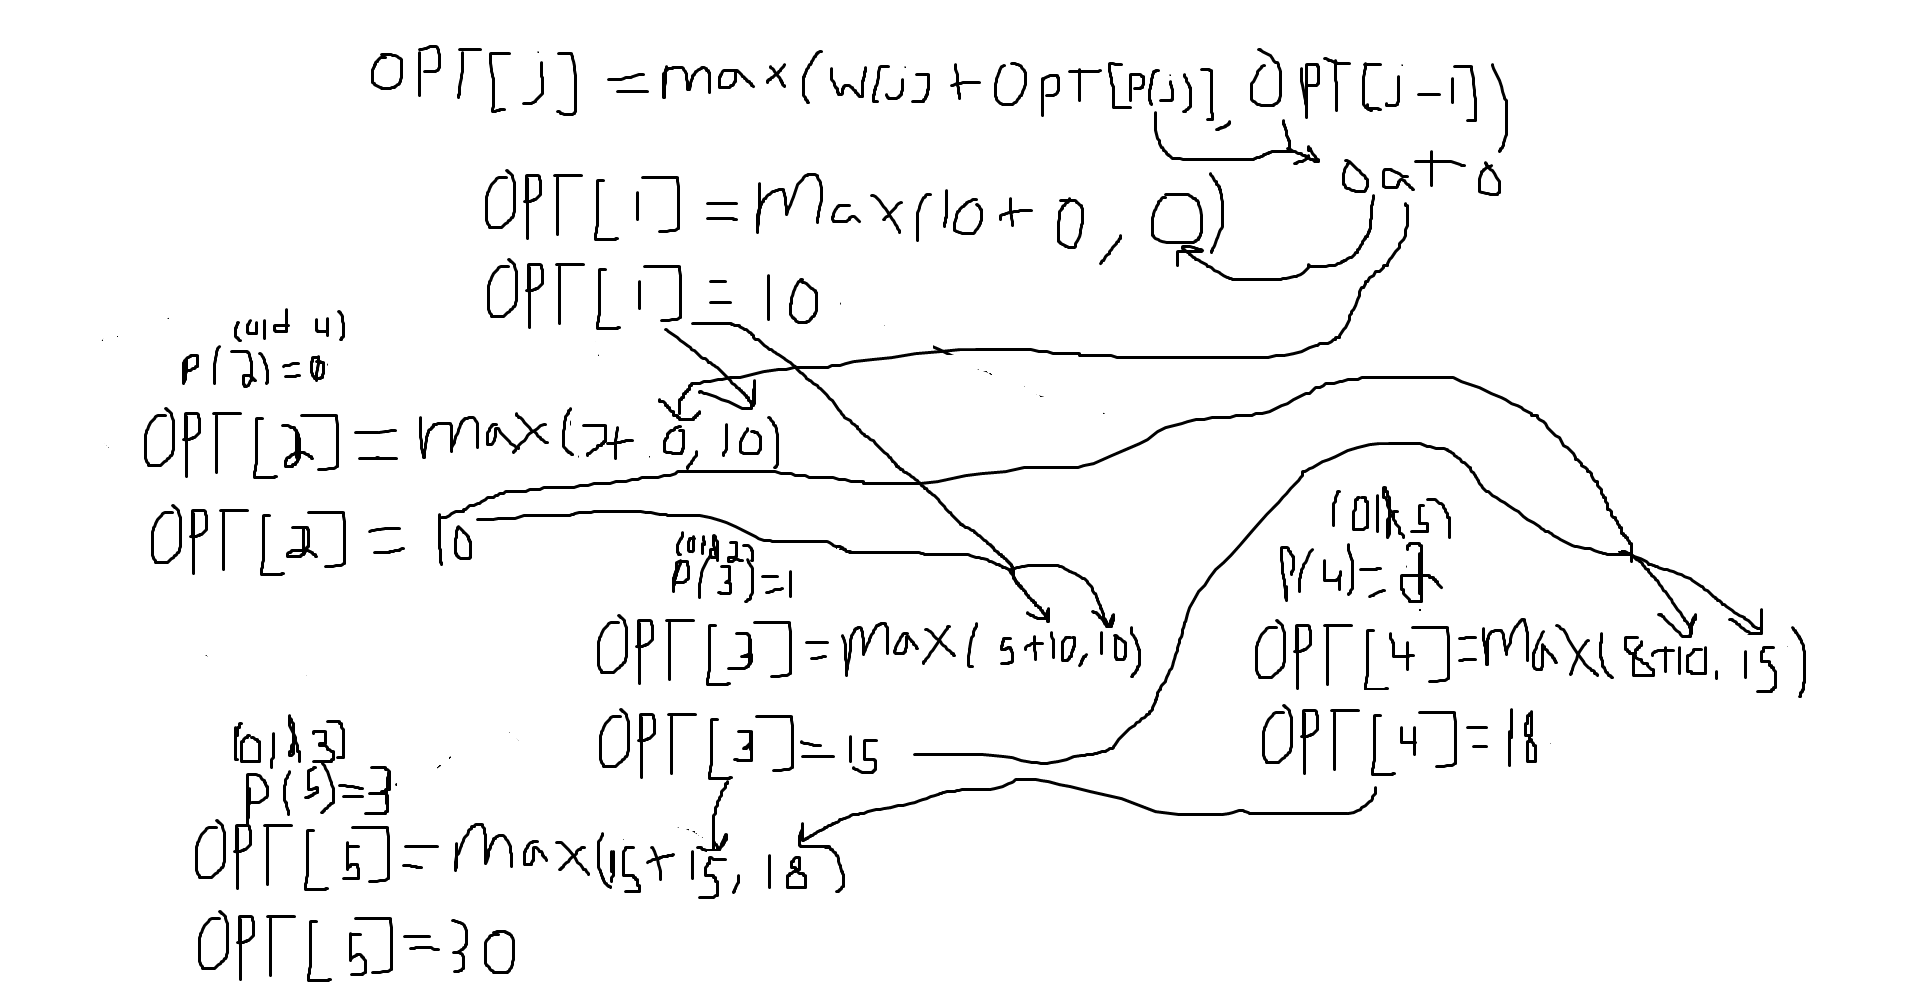 OPT[j] = max(w[j] + OPT[p(j)], OPT[j-1])
0 at 0
OPT[1] = max(10 + 0, 0)
OPT[1] = 10
(old 4)
p(2) = 0
OPT[2] = max(7+ 0, 10)
OPT[2] = 10
(old 2)
p(3) = 1
OPT[3] = max(5+10, 10)
OPT[3] = 15
(old 5)
p(4) = 2
OPT[4] = max(8+10, 15)
OPT[4] = 18
(old 3)
p(5) = 3
OPT[5] = max(15 + 15, 18)
OPT[5] = 30